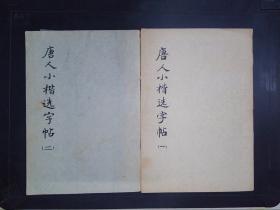 唐人小楷选字帖
(二)
唐人小楷选字帖
(一)